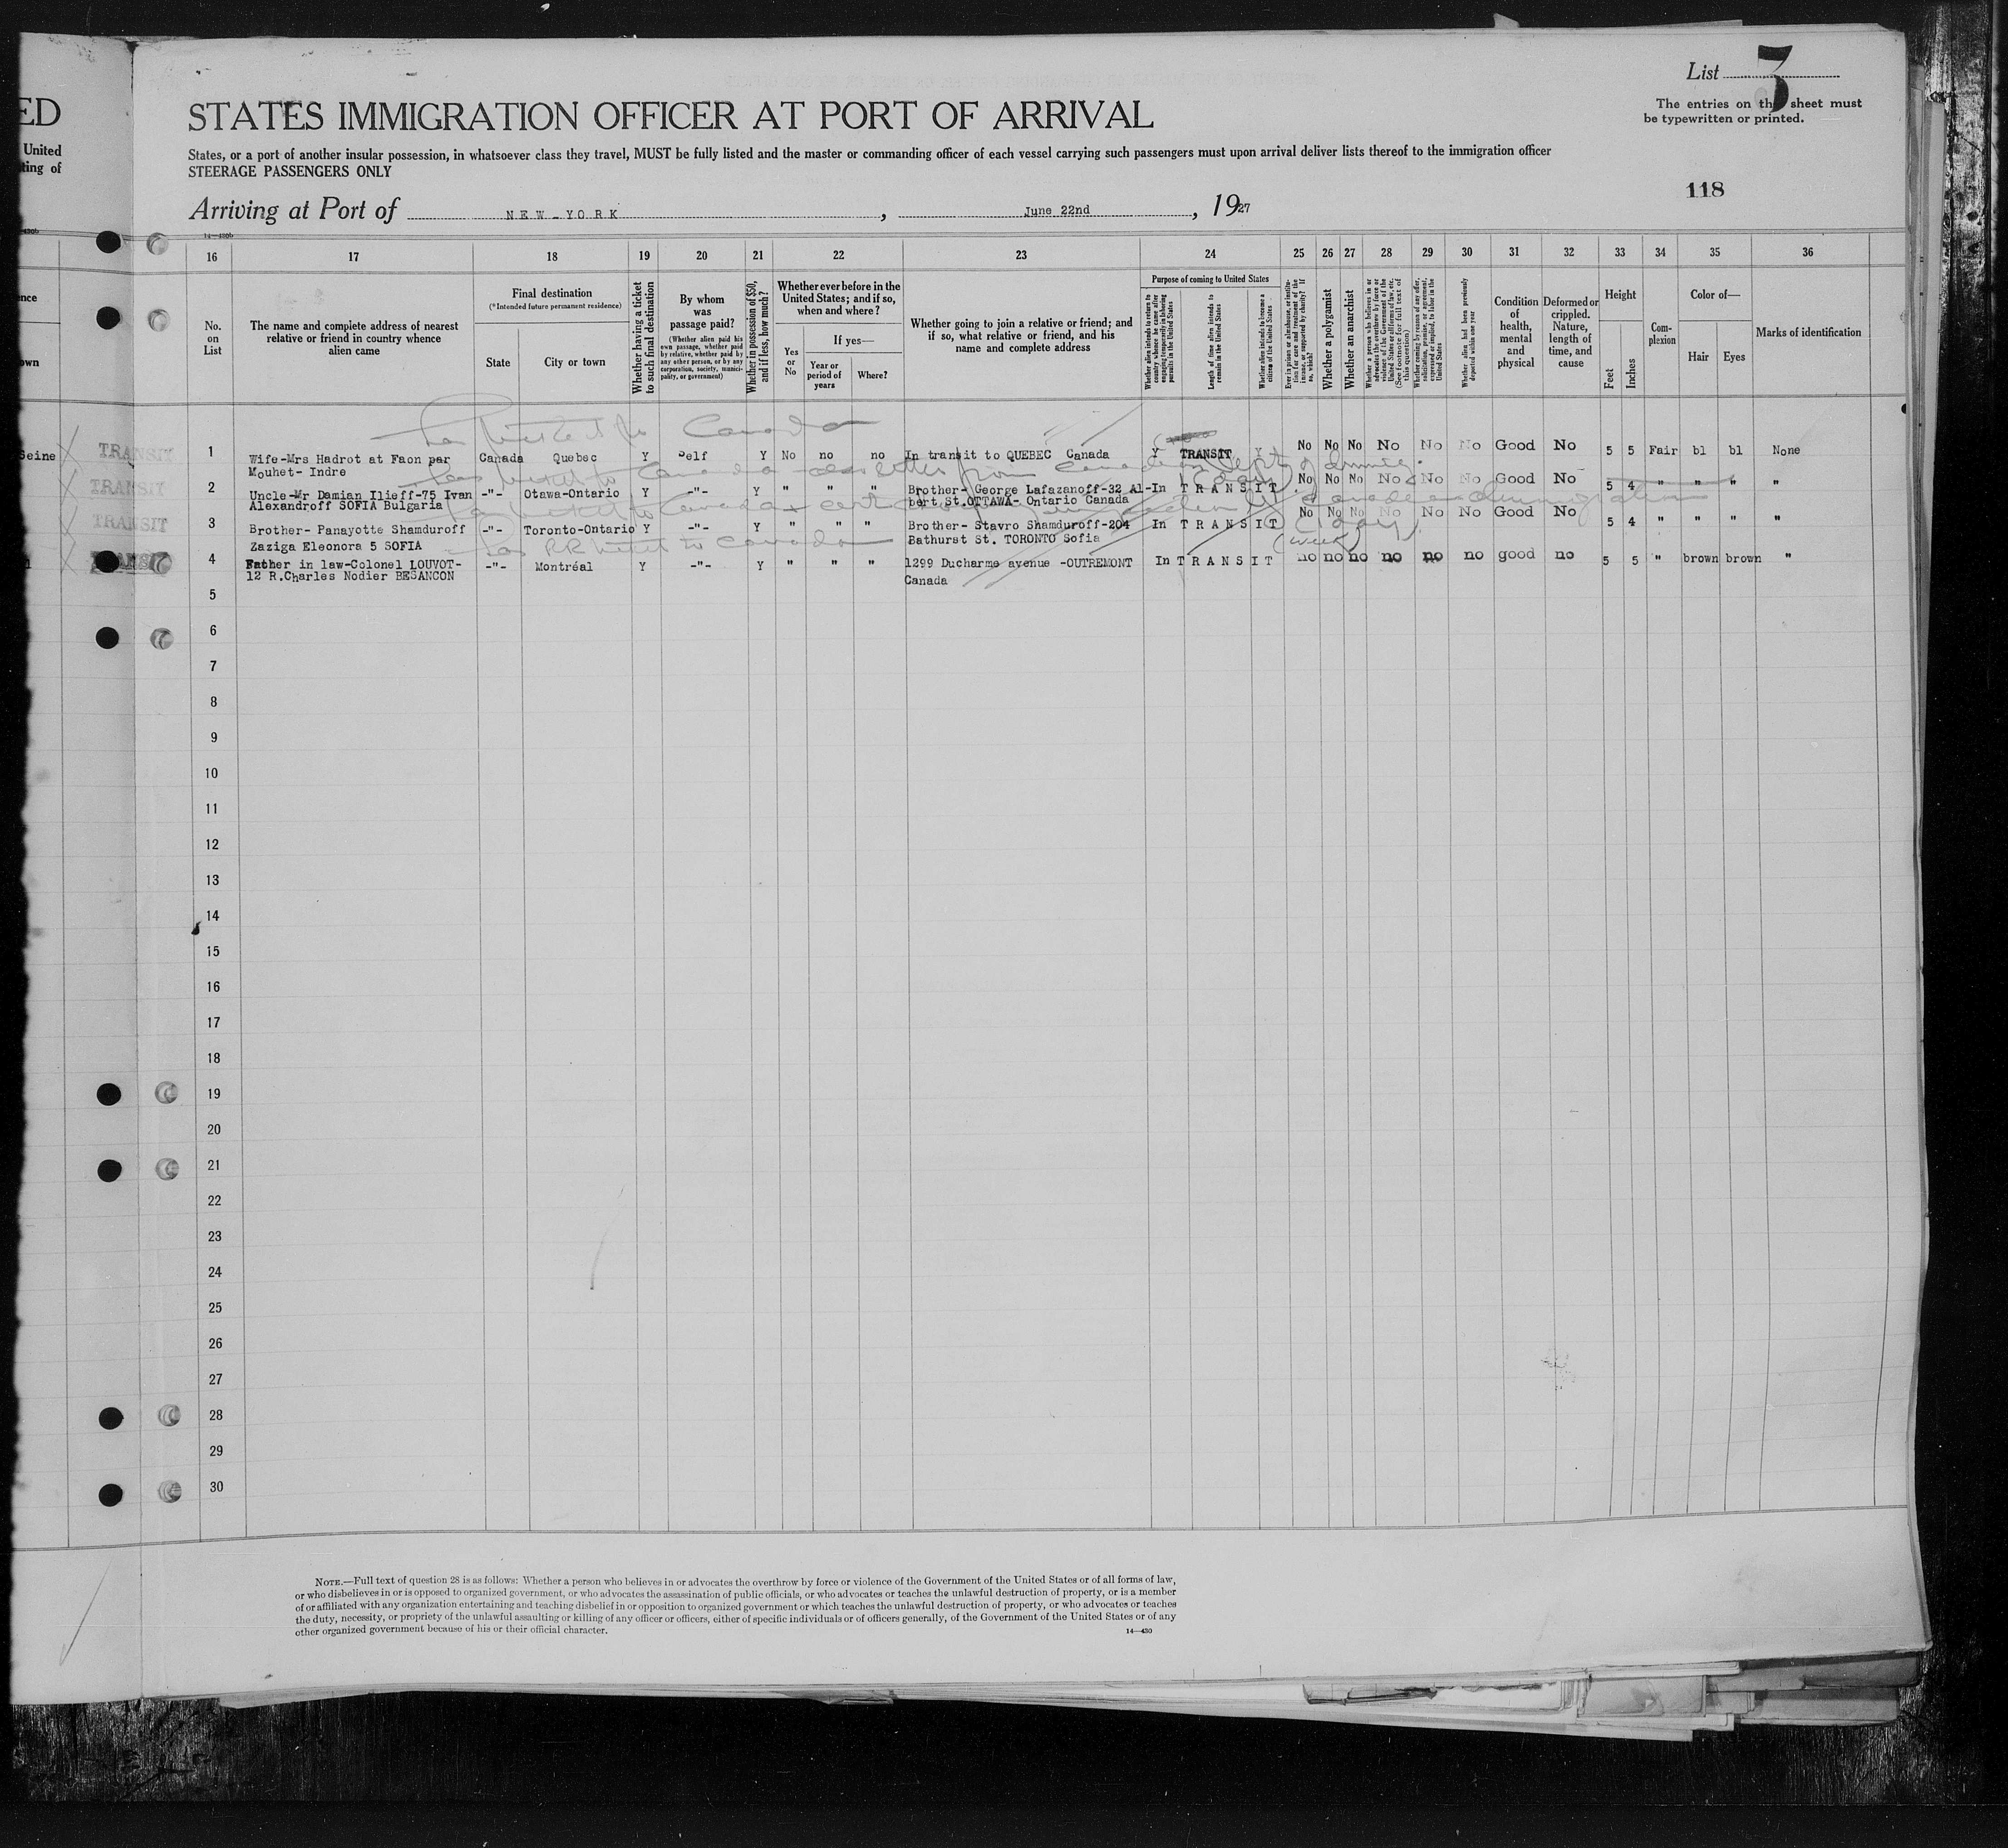 ED
United
ting of
List 3
The entries on this sheet must
be typewritten or printed.
STATES IMMIGRATION OFFICER AT PORT OF ARRIVAL
States, or a port of another insular possession, in whatsoever class they travel, MUST be fully listed and the master or commanding officer of each vessel carrying such passengers must upon arrival deliver lists thereof to the immigration officer
STEERAGE PASSENGERS ONLY
118
Arriving at Port of NEW-YORK, June 22nd, 1927
14-430b
16 17 18 19 20 21 22 23 24 25 26 27 28 29 30 31 32 33 34 35 36
No. on List
The name and complete address of nearest relative or friend in country whence alien came
Final destination
(*Intended future permanent residence)
State
City or town
Whether having a ticket to such final destination
By whom was passage paid?
(Whether alien paid his own passage, whether paid by relative, whether paid by any other person, or by any corporation, society, municipality, or government)
Whether in possession of $50, and if less, how much?
Whether ever before in the United States; and if so, when and where?
Yes or No
If yes—
Year or period of years
Where?
Whether going to join a relative or friend; and if so, what relative or friend, and his name and complete address
Purpose of coming to United States
Whether alien intends to return to country whence he came after engaging temporarily in laboring pursuits in the United States
Length of time alien intends to remain in the United States
Whether alien intends to become a citizen of the United States
Ever in prison or almshouse, or institution for care and treatment of the insane, or supported by charity? If so, which?
Whether a polygamist
Whether an anarchist
Whether a person who believes in or advocates the overthrow by force or violence of the Government of the United States or all forms of law, etc. (See footnote for full text of this question)
Whether coming by reason of any offer, solicitation, promise, or agreement, expressed or implied, to labor in the United States
Whether alien had been previously deported within one year
Condition of health, mental and physical
Deformed or crippled. Nature, length of time, and cause
Height
Feet
Inches
Complexion
Color of—
Hair
Eyes
Marks of identification
has ticket to Canada
Seine TRANSIT 1 Wife-Mrs Hadrot at Faon par Canada Quebec Y Self Y No no no In transit to QUEBEC Canada Y TRANSIT Y No No No No No No Good No 5 5 Fair bl bl None
Mouhet- Indre
has ticket to Canada also letter from Canadian Dept of Immig.
TRANSIT 2 Uncle-Mr Damian Ilieff-75 Ivan -"- Otawa-Ontario Y -"- Y " " " Brother- George Lafazanoff-32 Al- In TRANSIT No No No No No No Good No 5 4 " " " "
Alexandroff SOFIA Bulgaria bert St.OTTAWA- Ontario Canada
TRANSIT 3 Brother- Panayotte Shamduroff -"- Toronto-Ontario Y -"- Y " " " Brother- Stavro Shamduroff-204 In TRANSIT No No No No No No Good No 5 4 " " " "
Zaziga Eleonora 5 SOFIA Bathurst St. TORONTO Sofia
has RR ticket to Canada (week)
TRANSIT 4 Father in law-Colonel LOUVOT- -"- Montréal Y -"- Y " " " 1299 Ducharme avenue -OUTREMONT In TRANSIT no no no no no no good no 5 5 " brown brown "
12 R.Charles Nodier BESANCON Canada
5
6
7
8
9
10
11
12
13
14
15
16
17
18
19
20
21
22
23
24
25
26
27
28
29
30
NOTE.—Full text of question 28 is as follows: Whether a person who believes in or advocates the overthrow by force or violence of the Government of the United States or of all forms of law,
or who disbelieves in or is opposed to organized government, or who advocates the assassination of public officials, or who advocates or teaches the unlawful destruction of property, or is a member
of or affiliated with any organization entertaining and teaching disbelief in or opposition to organized government or which teaches the unlawful destruction of property, or who advocates or teaches
the duty, necessity, or propriety of the unlawful assaulting or killing of any officer or officers, either of specific individuals or of officers generally, of the Government of the United States or of any
other organized government because of his or their official character.
14—430